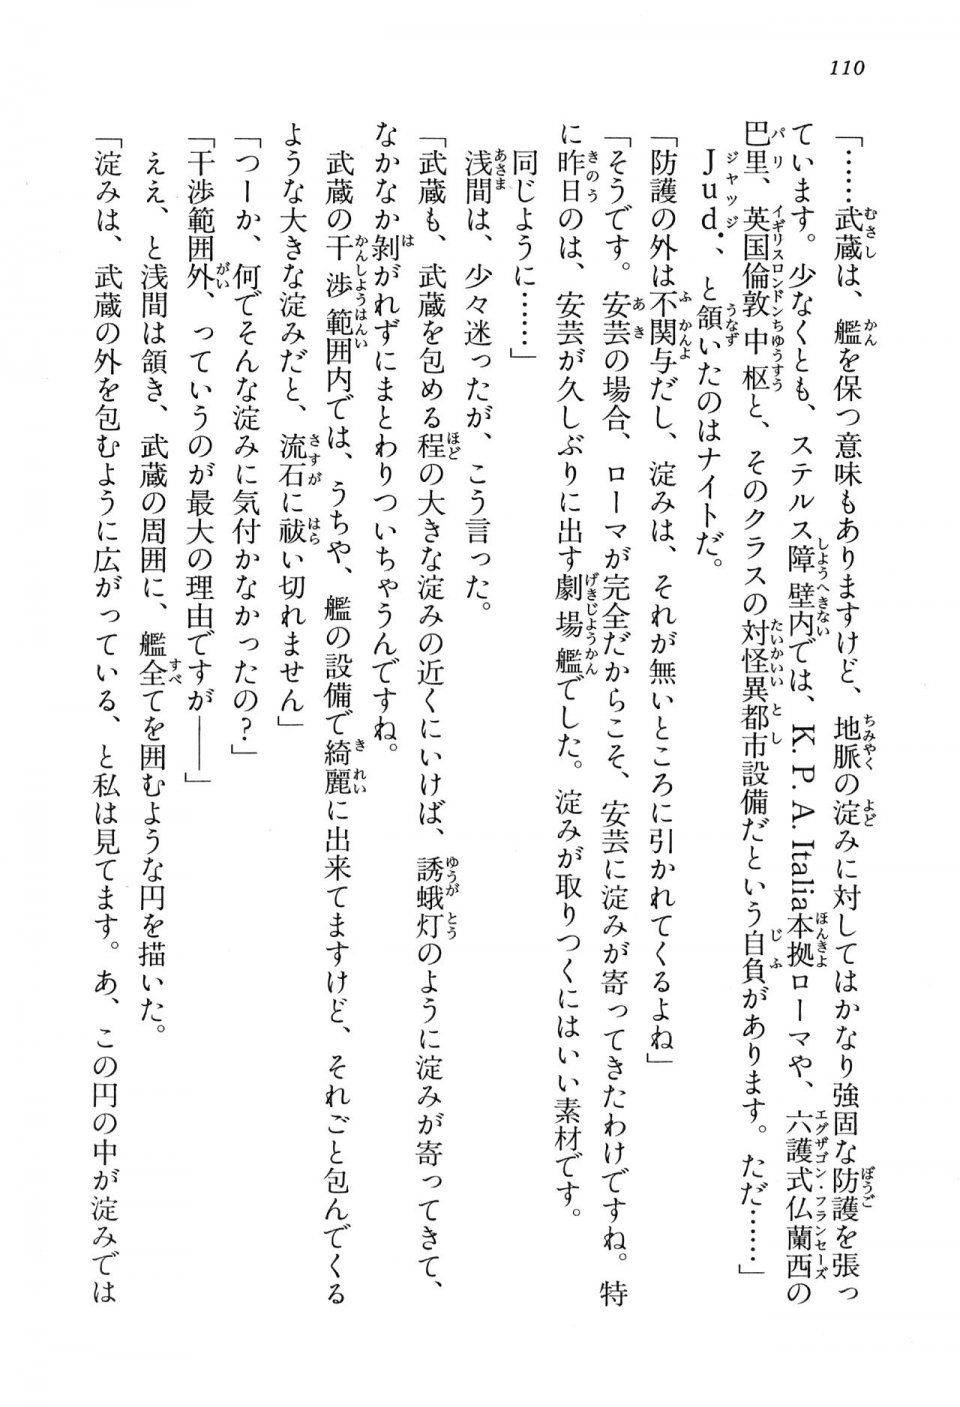 110
「……武蔵は、艦を保つ意味もありますけど、地脈の淀みに対してはかなり強固な防護を張っ
ています。少なくとも、ステルス障壁内では、K.P.A.Italia本拠ローマや、六護式仏蘭西の
巴里、英国倫敦中枢と、そのクラスの対怪異都市設備だという自負があります。ただ……」
Jud.、と頷いたのはナイトだ。
「防護の外は不関与だし、淀みは、それが無いところに引かれてくるよね」
「そうです。安芸の場合、ローマが完全だからこそ、安芸に淀みが寄ってきたわけですね。特
に昨日のは、安芸が久しぶりに出す劇場艦でした。淀みが取りつくにはいい素材です。
同じように……」
浅間は、少々迷ったが、こう言った。
「武蔵も、武蔵を包める程の大きな淀みの近くにいけば、誘蛾灯のように淀みが寄ってきて、
なかなか剥がれずにまとわりついちゃうんですね。
武蔵の干渉範囲内では、うちや、艦の設備で綺麗に出来てますけど、それごと包んでくる
ような大きな淀みだと、流石に祓い切れません」
「つーか、何でそんな淀みに気付かなかったの？」
「干渉範囲外、っていうのが最大の理由ですが――」
ええ、と浅間は頷き、武蔵の周囲に、艦全てを囲むような円を描いた。
「淀みは、武蔵の外を包むように広がっている、と私は見てます。あ、この円の中が淀みでは